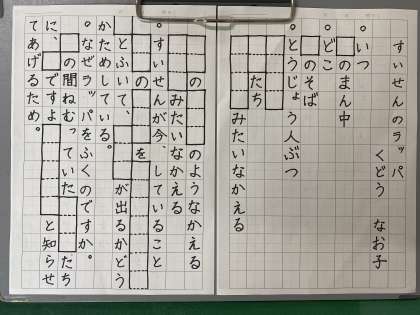 すいせんのラッパ
くどう なお子
。いつ
のまん中
。どこ
のそば
。とうじょう人ぶつ
たち
みたいなかえる
の のようなかえる
みたいなかえる
。すいせんが今、していること
の を
とふいて、 が出るかどう
かためしている。
。なぜラッパをふくのですか。
の間ねむっていた たち
に、 ですよ と知らせ
てあげるため。